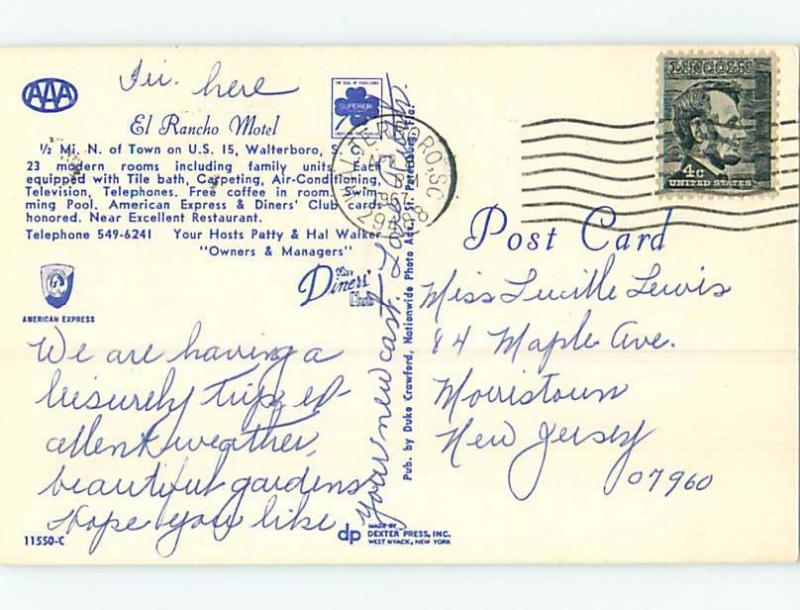 Fri. here
AAA
THE SEAL OF EXCELLENCE
SUPERIOR
El Rancho Motel
½ Mi. N. of Town on U.S. 15, Walterboro, S.
23 modern rooms including family units. Each
equipped with Tile bath, Carpeting, Air-Conditioning,
Television, Telephones. Free coffee in room. Swim-
ming Pool. American Express & Diners' Club cards
honored. Near Excellent Restaurant.
Telephone 549-6241 Your Hosts Patty & Hal Walker
"Owners & Managers"
AMERICAN EXPRESS
The Diners' Club
We are having a
leisurely trip, ex-
cellent weather,
beautiful gardens
Hope you like
your new cast. Love, Ruth
11550-C
dp MADE BY
DEXTER PRESS, INC.
WEST NYACK, NEW YORK
Pub. by Duke Crawford, Nationwide Photo Adv., St. Petersburg, Fla.
WALTERBORO, SC
APR
1967
29488
LINCOLN
4c
UNITED STATES
Post Card
Miss Lucille Lewis
84 Maple Ave.
Morristown
New Jersey
07960